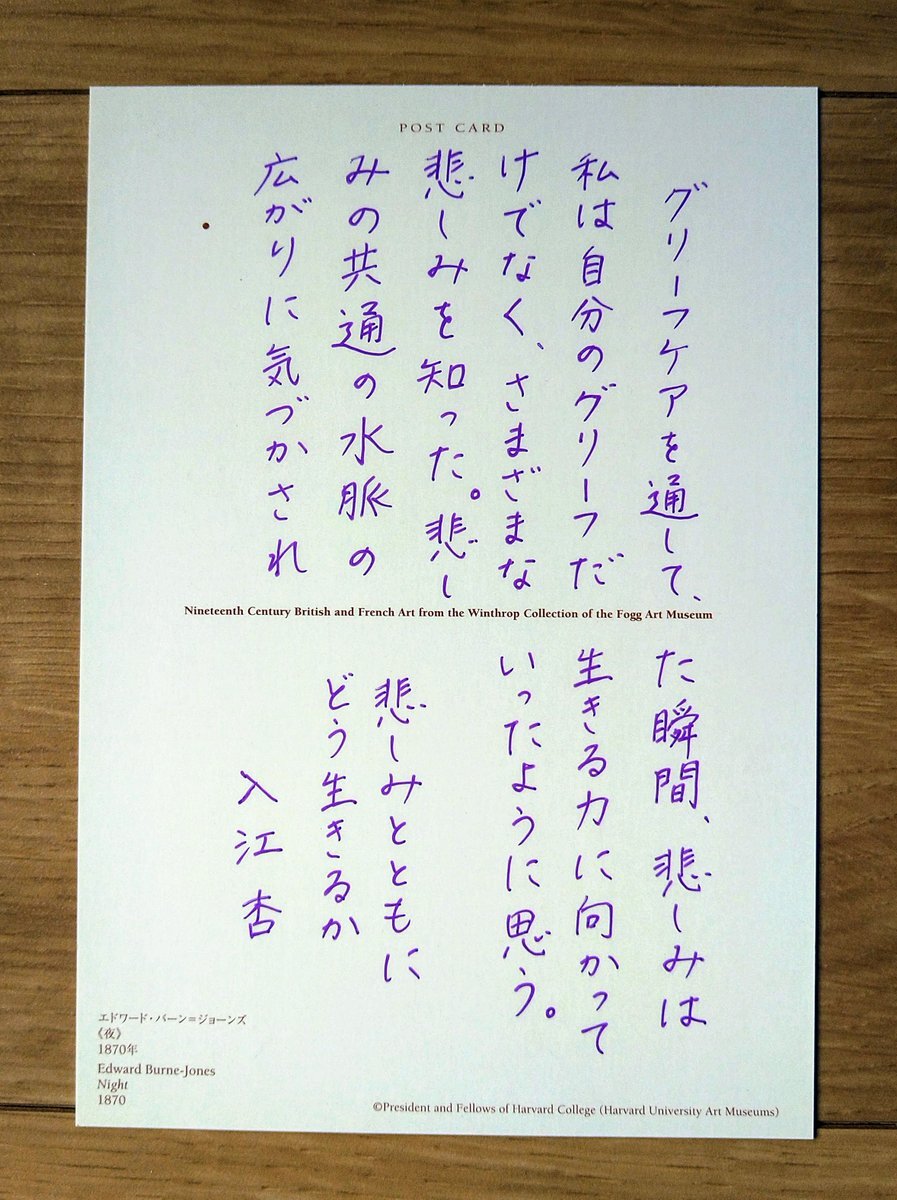 POST CARD
グリーフケアを通して、
私は自分のグリーフだ
けでなく、さまざまな
悲しみを知った。悲し
みの共通の水脈の
広がりに気づかされ
Nineteenth Century British and French Art from the Winthrop Collection of the Fogg Art Museum
た瞬間、悲しみは
生きる力に向かって
いったように思う。
悲しみとともに
どう生きるか
入江杏
エドワード・バーン＝ジョーンズ
《夜》
1870年
Edward Burne-Jones
Night
1870
©President and Fellows of Harvard College (Harvard University Art Museums)